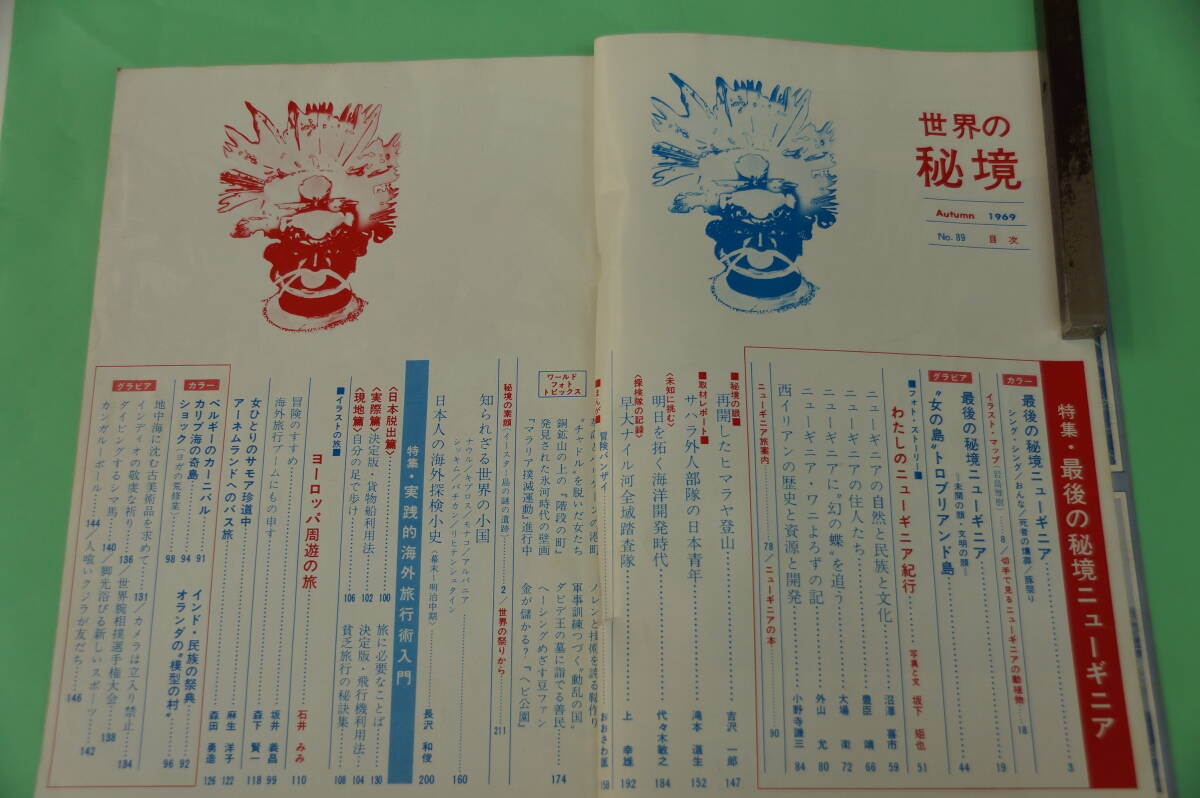 世界の
秘境
Autumn 1969
No.89 目次
特集・最後の秘境ニューギニア 3
カラー
最後の秘境ニューギニア 18
シング・シング/おんな/死者の燻葬/豚祭り
イラスト・マップ(岩島雅樹)…8/切手で見るニューギニアの動植物 19
グラビア
最後の秘境ニューギニア
―未開の顔・文明の顔―
“女の島”トロブリアンド島 44
■フォト・ストーリー■
わたしのニューギニア紀行 写真と文 坂下 51
ニューギニアの自然と民族と文化 沼澤 喜市 59
ニューギニアの住人たち 豊臣 靖 66
ニューギニアに“幻の蝶”を追う 大場 72
ニューギニア・ワニよろずの記 外山 80
西イリアンの歴史と資源と開発 小野寺謙三 84
ニューギニア旅案内 78/ニューギニアの本 90
■秘境の眼■
再開したヒマラヤ登山 吉沢 一郎 147
■取材レポート■
サハラ外人部隊の日本青年 滝本 道生 152
〈未知に挑む〉
明日を拓く海洋開発時代 代々木敏之 184
〈探検隊の記録〉
早大ナイル河全域踏査隊 上 幸雄 192
冒険バンザイ おおさわ 158
ワールド
フォト
トピックス
ノレンと技術を誇る靴作り
“チャドル”を脱いだ女たち 軍事訓練つづく“動乱の国”
銅鉱山の上の『階段の町』 ダビデ王の墓に詣でる善民
発見された氷河時代の壁画 ヘーシングめざす豆ファン
『マラリア撲滅運動』進行中 金が儲かる?『ヘビ公園』
174
秘境の素顔(イースター島の謎の遺跡) 2/世界の祭りから 211
知られざる世界の小国 160
ナウル/キプロス/モナコ/アルバニア
シッキム/バチカン/リヒテンシュタイン
日本人の海外探検小史〈幕末・明治中期〉 長沢 和俊 200
特集・実践的海外旅行術入門
〈日本脱出篇〉 100 旅に必要なことば 130
〈実際篇〉決定版・貨物船利用法 102 決定版・飛行機利用法 104
〈現地篇〉自分の足で歩け 106 貧乏旅行の秘訣集 108
■イラストの旅■
ヨーロッパ周遊の旅 石井 みみ 110
冒険のすすめ
海外旅行ブームにもの申す 坂井 義昌 99
女ひとりのサモア珍道中 森下 賢一 118
アーネムランドへのバス旅 麻生 洋子 122
ベルギーのカーニバル 森田 勇造 126
カラー
カリブ海の奇島 91
94 インド・民族の祭典 92
ショック(ヨガの荒修業) 98 オランダの“模型の村” 96
グラビア
地中海に沈む古美術品を求めて 131/カメラは立入り禁止 134
インディオの敬虔な祈り 136/世界腕相撲選手権大会 138
ダイビングするシマ馬 140/脚光浴びる新しいスポーツ 142
カンガルーボール 144/人喰いクジラが友だち 146